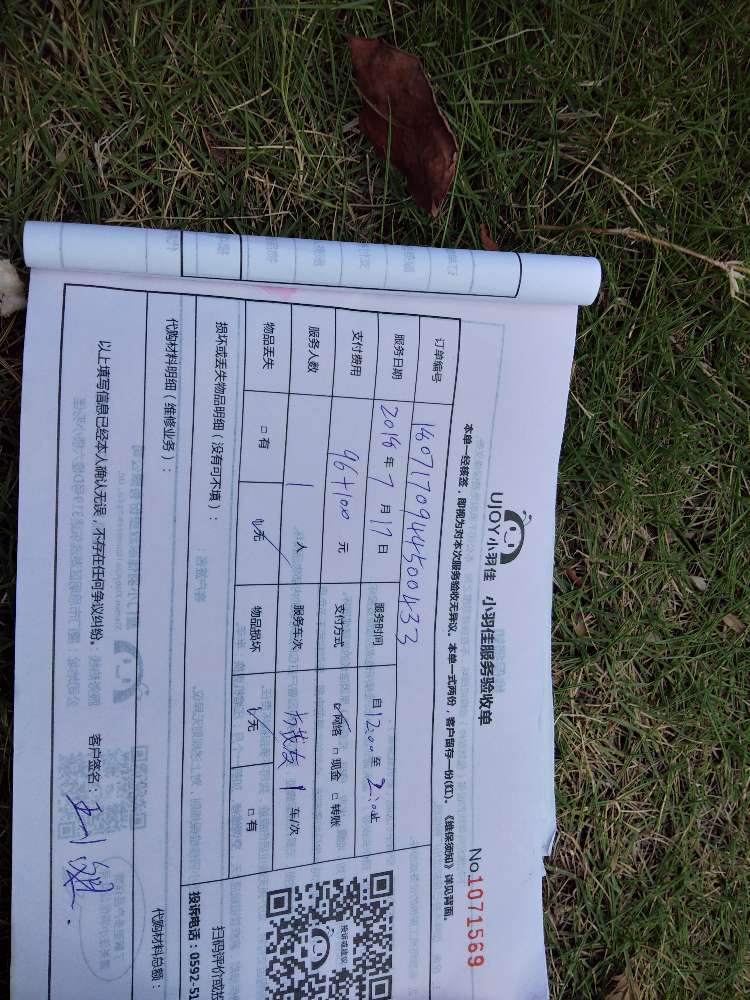 UJOY小羽佳 小羽佳服务验收单
No.1071569
本单一经核签，即视为对本次服务验收无异议。本单一式两份，客户留存一份(红)。《维保须知》详见背面。
订单编号 180717094450043​3
服务日期 2018年7月17日 服务时间 自12:00至2:00止
支付费用 96+100 元 支付方式 ☑网络 □现金 □转账
服务人数 1 人 服务车次 1 车/次
物品丢失 □有 ☑无 物品损坏 ☑无 □有
损坏或丢失物品明细（没有可不填）：
代购材料明细（维修业务）：
代购材料总额：
投诉或建议
扫码评价或投
投诉电话：0592-51
以上填写信息已经本人确认无误，不存在任何争议纠纷。 客户签名：